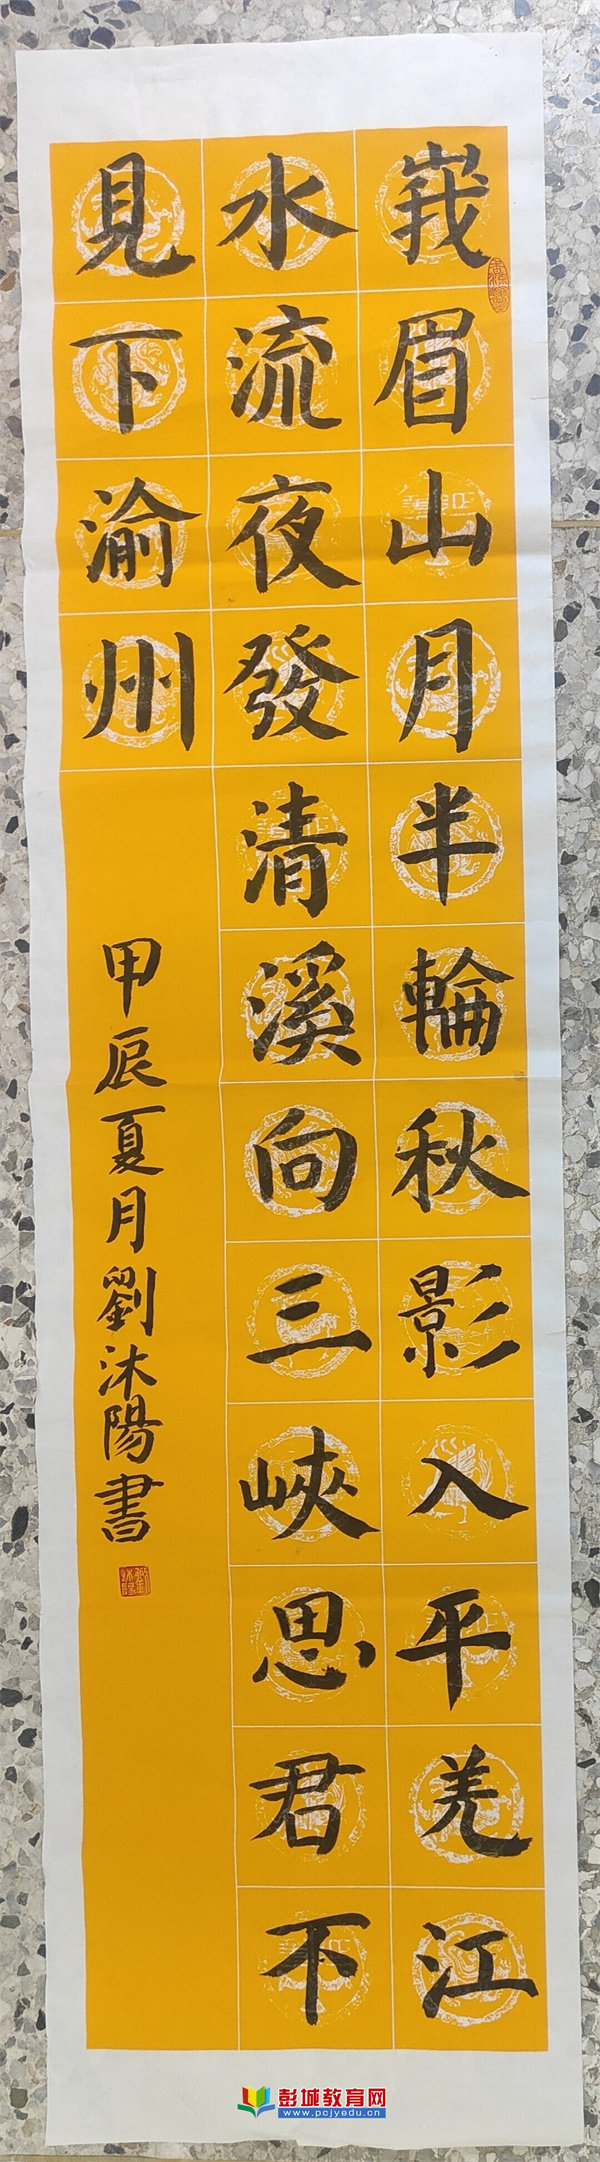 峩眉山月半輪秋影入平羌江
水流夜發清溪向三峽思君不
見下渝州
甲辰夏月劉沐陽書
彭城教育网
www.pcjyedu.cn